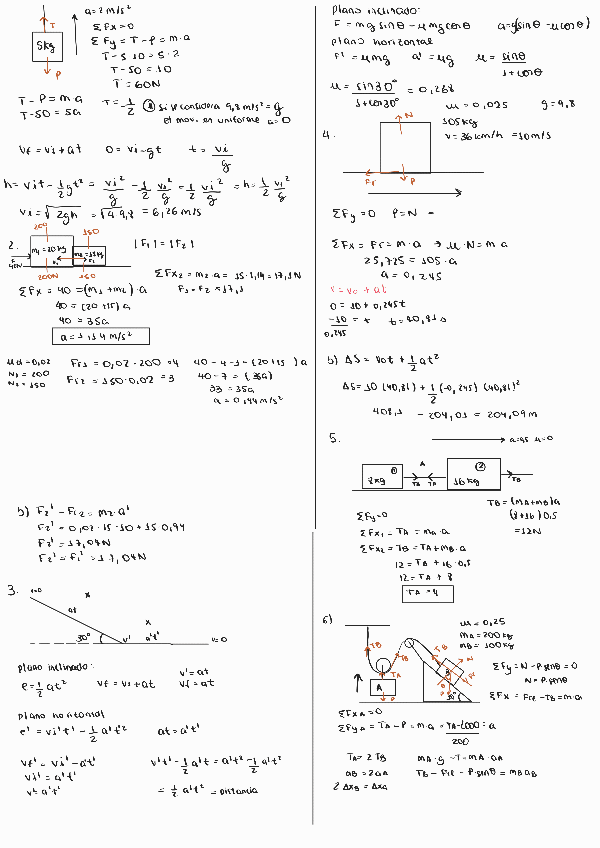 a = 2 m/s²
T
5kg
P
ΣFx = 0
ΣFy = T - P = m · a
T - 5 · 10 = 5 · 2
T - 50 = 10
T = 60N
T - P = m a
T - 50 = 5a
Si se considera 9,8 m/s² = g
el mov. es uniforme a = 0
Vf = Vi + at    0 = Vi - gt    t = Vi/g
h = Vit - 1/2 gt² = Vi²/g - 1/2 Vi²/g = 1/2 Vi²/g = h = 1/2 Vi²/g
Vi = √2gh = √4 9,8 = 6,26 m/s
2.
200
150
m1 = 20 kg
40N
F1
200N
150
|F1| = |F2|
ΣFx2 = m2 · a = 15 · 1,14 = 17,1N
F1 = F2 = 17,1
ΣFx = 40 = (m1 + m2) · a
40 = (20 + 15) a
40 = 35a
a = 1,14 m/s²
μd = 0,02
N1 = 200
N2 = 150
Fr1 = 0,02 · 200 = 4
Fr2 = 150 · 0,02 = 3
40 - 4 - 3 = (20 + 15) a
40 - 7 = (35a)
33 = 35a
a = 0,94 m/s²
b) F2' - Fr2 = m2 · a'
F2' = 0,02 · 15 · 10 + 15 0,94
F2' = 17,04N
F2' = F1' = 17,04N
3.
v=0
x
at
x
30°
v'
a't'
v=0
plano inclinado:
e = 1/2 at²    Vf = Vi + at
v' = at
Vf = at
plano horizontal
e' = Vi't' - 1/2 a't'²    at = a't'
Vf' = Vi' - a't'
Vi' = a't'
v't' - 1/2 a't = a't'² - 1/2 a't²
= 1/2 a't'² = Distancia
plano inclinado:
F = mg sinθ - μ mg cosθ    a = g(sinθ - μ cosθ)
plano horizontal
Fr' = μmg    a' = μg    μ = sinθ/1+cosθ
μ = sin30°/1+cos30° = 0,268
4.
μ = 0,025    g = 9,8
105kg
v = 36 km/h = 10m/s
N
Fr
P
ΣFy = 0    P = N =
ΣFx = Fr = m · a → μ · N = m a
25,725 = 105 · a
a = 0,245
v = v0 + at
0 = 10 + 0,245t
-10/0,245 = t    t = 40,81 s
b) ΔS = V0t + 1/2 at²
ΔS = 10 (40,81) + 1/2 (-0,245) (40,81)²
408,1 - 204,01 = 204,09 m
5.
a = 0,5  μ = 0
1
8kg
A
TA TA
2
16kg
TB
TB = (mA + mB) a
(8 + 16) 0,5
= 12N
ΣFy = 0
ΣFx1 = TA = mA · a
ΣFx2 = TB = TA + mB · a
12 = TA + 16 · 0,5
12 = TA + 8
TA = 4
6)
TB
TB
TB
TA
A
P
N
Fr
30°
μ = 0,25
mA = 200 kg
mB = 100 kg
ΣFy = N - P · sinθ = 0
N = P · sinθ
ΣFxA = 0
ΣFyA = TA - P = m · a = TA - 2000/200 = a
TA = 2 TB
aB = 2aA
2 ΔxB = ΔxA
mA · g - T = mA · aA
TB - Fr - P · sinθ = mB aB